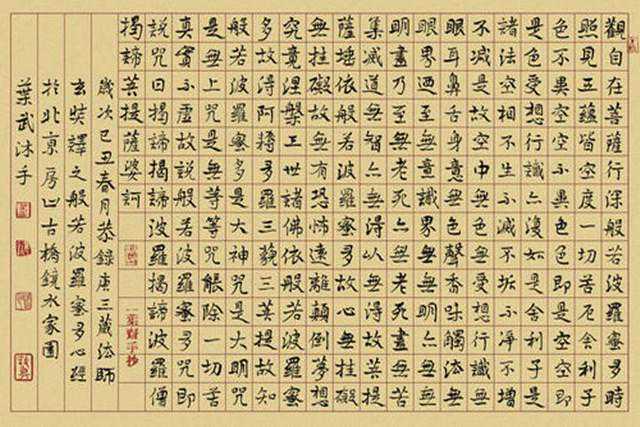 觀自在菩薩行深般若波羅蜜多時
照見五蘊皆空度一切苦厄舍利子
色不異空空不異色色即是空空即
是色受想行識亦復如是舍利子是
諸法空相不生不滅不垢不淨不增
不減是故空中無色無受想行識無
眼耳鼻舌身意無色聲香味觸法無
眼界迺至無意識界無無明亦無無
明盡乃至無老死亦無老死盡無苦
集滅道無智亦無得以無得故菩提
薩埵依般若波羅蜜多故心無挂礙
無挂礙故無有恐怖遠離顛倒夢想
究竟涅槃三世諸佛依般若波羅蜜
多故得阿耨多羅三藐三菩提故知
般若波羅蜜多是大神咒是大明咒
是無上咒是無等等咒能除一切苦
真實不虛故說般若波羅蜜多咒即
說咒曰揭諦揭諦波羅揭諦波羅僧
揭諦菩提薩婆訶
歲次己丑春月恭錄唐三藏法師
玄奘譯之般若波羅蜜多心經
於北京房山古橋鏡水家園
葉武沐手